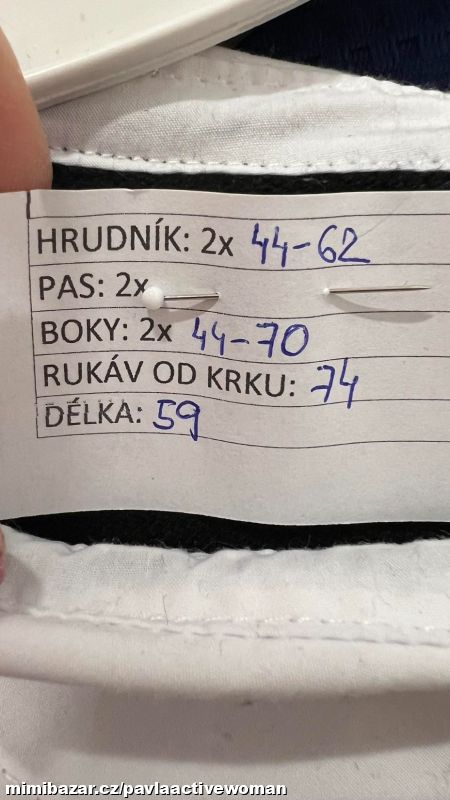 HRUDNÍK: 2x 44-62
PAS: 2x
BOKY: 2x 44-70
RUKÁV OD KRKU: 74
DÉLKA: 59
mimibazar.cz/pavlaactivewoman